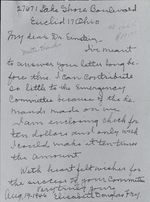 27671 Lake Shore Boulevard
Euclid 17 Ohio
My dear Dr. Einstein -
I've meant
to answer your letter long be-
fore this. I can contribute
so little to the Emergency
Committee because of the de-
mands made on me.
I am enclosing check for
ten dollars and only wish
I could make it ten times
the amount.
With heart felt wishes for
the success of your Committee
Very truly yours
Aug. 19-1946 Elizabeth